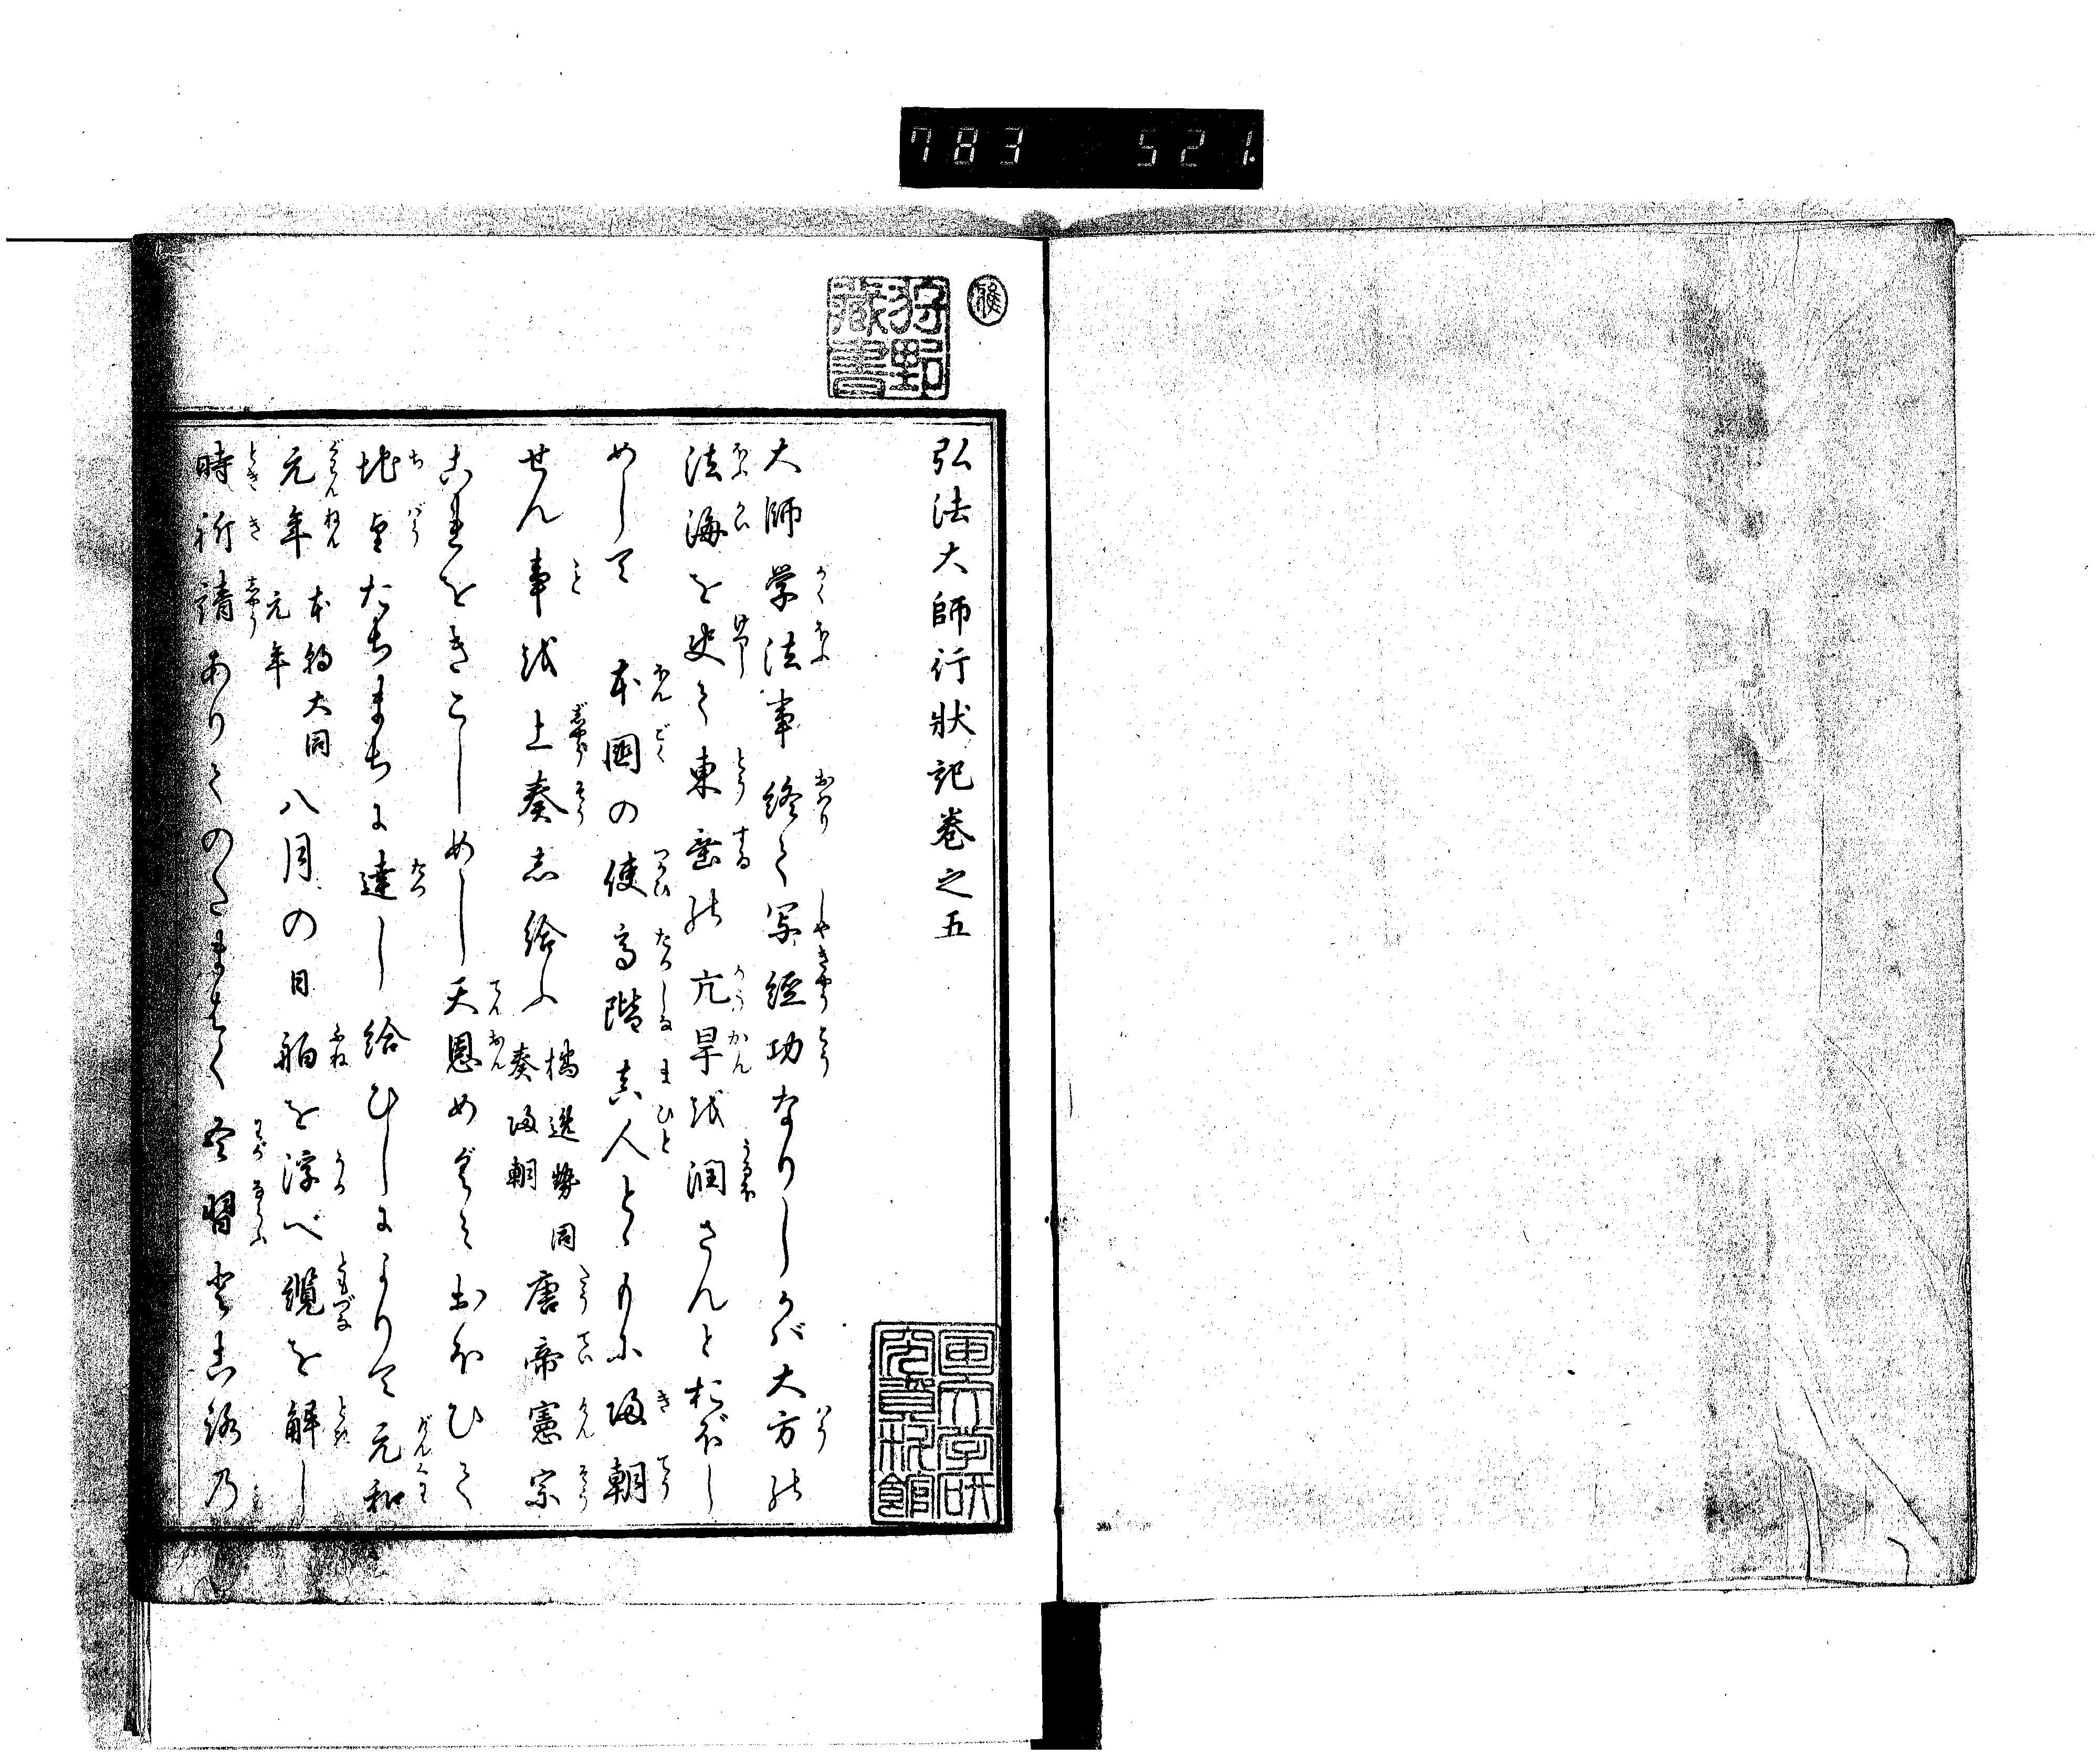 783 521
狩野
蔵書
弘法大師行状記巻之五
大師学法事終て写経功なりしかば大方の
法海を決て東垂の亢旱を潤さんとおぼし
めして本国の使高階真人とゝもに帰朝
せん事を上奏し給ふ橘逸勢同奏帰朝唐帝憲宗
これをきこしめし天恩めぐみおほひて
地望たちまちに達し給ひしによりて元和
元年本朝大同元年八月の日舶を浮べ纜を解し
時祈請ありてのたまはく